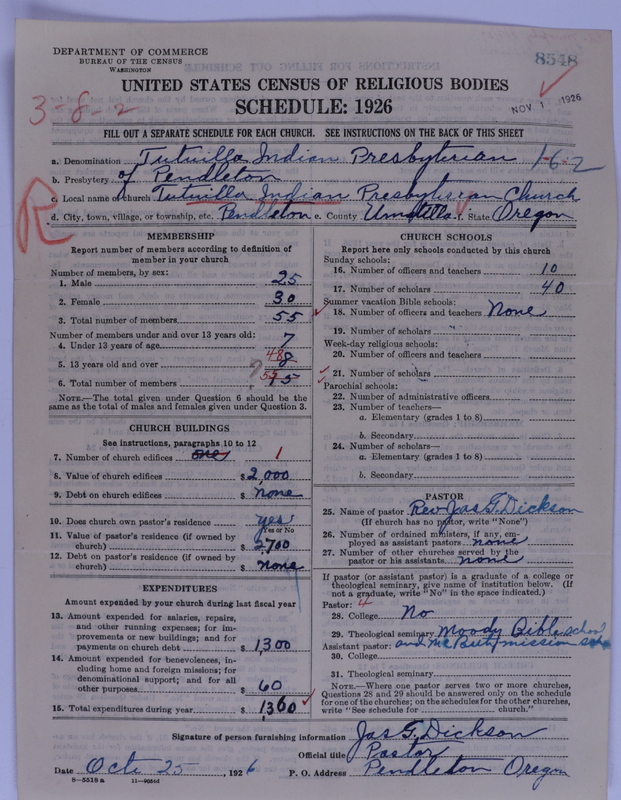 DEPARTMENT OF COMMERCE
BUREAU OF THE CENSUS
WASHINGTON
8548
UNITED STATES CENSUS OF RELIGIOUS BODIES
SCHEDULE: 1926
3-8-2
NOV 1 1926
FILL OUT A SEPARATE SCHEDULE FOR EACH CHURCH. SEE INSTRUCTIONS ON THE BACK OF THIS SHEET
a. Denomination Tutuilla Indian Presbyterian 1-6-2
b. Presbytery of Pendleton
c. Local name of church Tutuilla Indian Presbyterian Church
R
d. City, town, village, or township, etc. Pendleton e. County Umatilla f. State Oregon
MEMBERSHIP
Report number of members according to definition of
member in your church
Number of members, by sex:
1. Male 25
2. Female 30
3. Total number of members 55
Number of members under and over 13 years old:
4. Under 13 years of age 7
5. 13 years old and over 48 8
6. Total number of members ? 55 15
NOTE.—The total given under Question 6 should be the
same as the total of males and females given under Question 3.
CHURCH BUILDINGS
See instructions, paragraphs 10 to 12
7. Number of church edifices one 1
8. Value of church edifices $ 2,000
9. Debt on church edifices $ None
10. Does church own pastor's residence yes
Yes or No
11. Value of pastor's residence (if owned by
church) $ 2700
12. Debt on pastor's residence (if owned by
church) $ None
EXPENDITURES
Amount expended by your church during last fiscal year
13. Amount expended for salaries, repairs,
and other running expenses; for im-
provements or new buildings; and for
payments on church debt $ 1,300
14. Amount expended for benevolences, in-
cluding home and foreign missions; for
denominational support; and for all
other purposes $ 60
15. Total expenditures during year $ 1360
CHURCH SCHOOLS
Report here only schools conducted by this church
Sunday schools:
16. Number of officers and teachers 10
17. Number of scholars 40
Summer vacation Bible schools:
18. Number of officers and teachers None
19. Number of scholars
Week-day religious schools:
20. Number of officers and teachers
21. Number of scholars
Parochial schools:
22. Number of administrative officers
23. Number of teachers—
a. Elementary (grades 1 to 8)
b. Secondary
24. Number of scholars—
a. Elementary (grades 1 to 8)
b. Secondary
PASTOR
25. Name of pastor Rev Jas G. Dickson
(If church has no pastor, write "None")
26. Number of ordained ministers, if any, em-
ployed as assistant pastors none
27. Number of other churches served by the
pastor or his assistants none
If pastor (or assistant pastor) is a graduate of a college or
theological seminary, give name of institution below. (If
not a graduate, write "No" in the space indicated.)
Pastor: 4
28. College No
29. Theological seminary Moody Bible school
Assistant pastor: and McBeth mission
30. College
31. Theological seminary
NOTE.—Where one pastor serves two or more churches,
Questions 28 and 29 should be answered only on the schedule
for one of the churches; on the schedules for the other churches,
write "See schedule for church."
Signature of person furnishing information Jas G. Dickson
Official title Pastor
Date Oct 25, 1926 P. O. Address Pendleton Oregon
8-5518 a